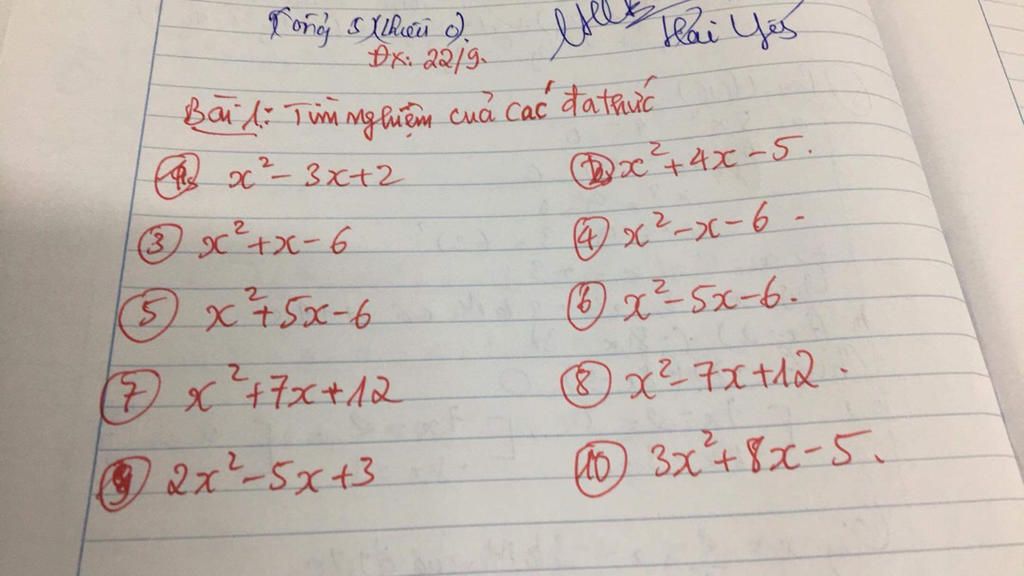 5 (thiếu
Đx: 22/9.
Hải Yến
Bài 1: Tìm nghiệm của các đa thức
① x² - 3x + 2 ② x² + 4x - 5.
③ x² + x - 6 ④ x² - x - 6
⑤ x² + 5x - 6 ⑥ x² - 5x - 6.
⑦ x² + 7x + 12 ⑧ x² - 7x + 12.
⑨ 2x² - 5x + 3 ⑩ 3x² + 8x - 5.